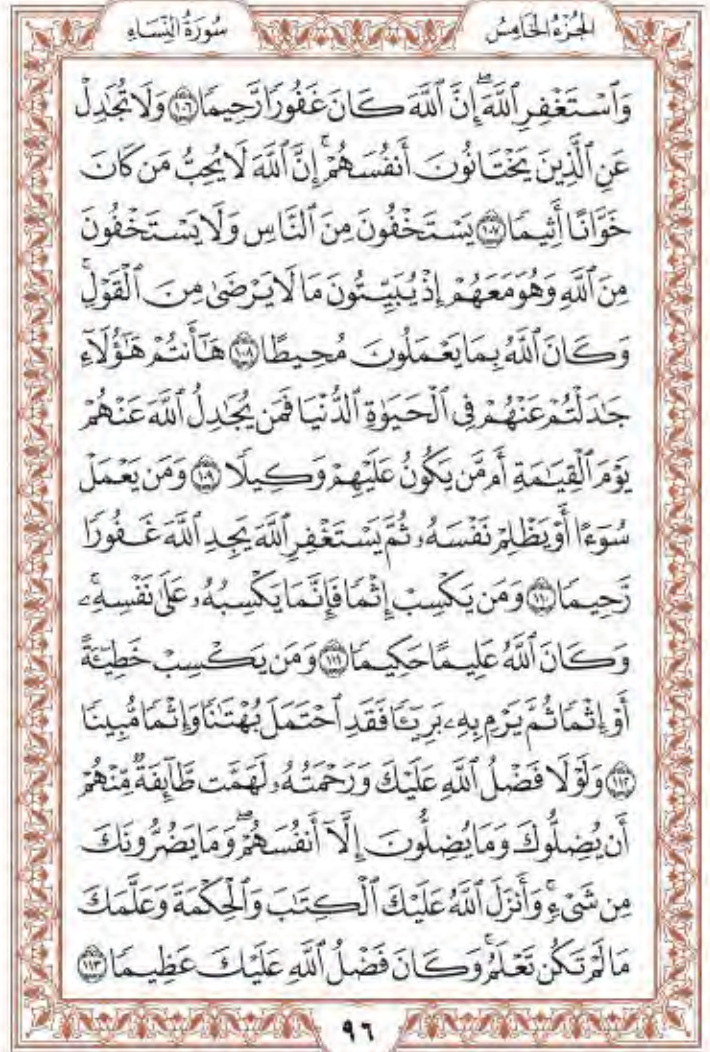 الجزء الخامس سورة النساء
وَٱسۡتَغۡفِرِ ٱللَّهَۖ إِنَّ ٱللَّهَ كَانَ غَفُورٗا رَّحِيمٗا ١٠٦ وَلَا تُجَٰدِلۡ
عَنِ ٱلَّذِينَ يَخۡتَانُونَ أَنفُسَهُمۡۚ إِنَّ ٱللَّهَ لَا يُحِبُّ مَن كَانَ
خَوَّانًا أَثِيمٗا ١٠٧ يَسۡتَخۡفُونَ مِنَ ٱلنَّاسِ وَلَا يَسۡتَخۡفُونَ
مِنَ ٱللَّهِ وَهُوَ مَعَهُمۡ إِذۡ يُبَيِّتُونَ مَا لَا يَرۡضَىٰ مِنَ ٱلۡقَوۡلِۚ
وَكَانَ ٱللَّهُ بِمَا يَعۡمَلُونَ مُحِيطًا ١٠٨ هَٰٓأَنتُمۡ هَٰٓؤُلَآءِ
جَٰدَلۡتُمۡ عَنۡهُمۡ فِي ٱلۡحَيَوٰةِ ٱلدُّنۡيَا فَمَن يُجَٰدِلُ ٱللَّهَ عَنۡهُمۡ
يَوۡمَ ٱلۡقِيَٰمَةِ أَم مَّن يَكُونُ عَلَيۡهِمۡ وَكِيلٗا ١٠٩ وَمَن يَعۡمَلۡ
سُوٓءًا أَوۡ يَظۡلِمۡ نَفۡسَهُۥ ثُمَّ يَسۡتَغۡفِرِ ٱللَّهَ يَجِدِ ٱللَّهَ غَفُورٗا
رَّحِيمٗا ١١٠ وَمَن يَكۡسِبۡ إِثۡمٗا فَإِنَّمَا يَكۡسِبُهُۥ عَلَىٰ نَفۡسِهِۦۚ
وَكَانَ ٱللَّهُ عَلِيمًا حَكِيمٗا ١١١ وَمَن يَكۡسِبۡ خَطِيٓـَٔةً
أَوۡ إِثۡمٗا ثُمَّ يَرۡمِ بِهِۦ بَرِيٓـٔٗا فَقَدِ ٱحۡتَمَلَ بُهۡتَٰنٗا وَإِثۡمٗا مُّبِينٗا
١١٢ وَلَوۡلَا فَضۡلُ ٱللَّهِ عَلَيۡكَ وَرَحۡمَتُهُۥ لَهَمَّت طَّآئِفَةٞ مِّنۡهُمۡ
أَن يُضِلُّوكَ وَمَا يُضِلُّونَ إِلَّآ أَنفُسَهُمۡۖ وَمَا يَضُرُّونَكَ
مِن شَيۡءٖۚ وَأَنزَلَ ٱللَّهُ عَلَيۡكَ ٱلۡكِتَٰبَ وَٱلۡحِكۡمَةَ وَعَلَّمَكَ
مَا لَمۡ تَكُن تَعۡلَمُۚ وَكَانَ فَضۡلُ ٱللَّهِ عَلَيۡكَ عَظِيمٗا ١١٣
٩٦